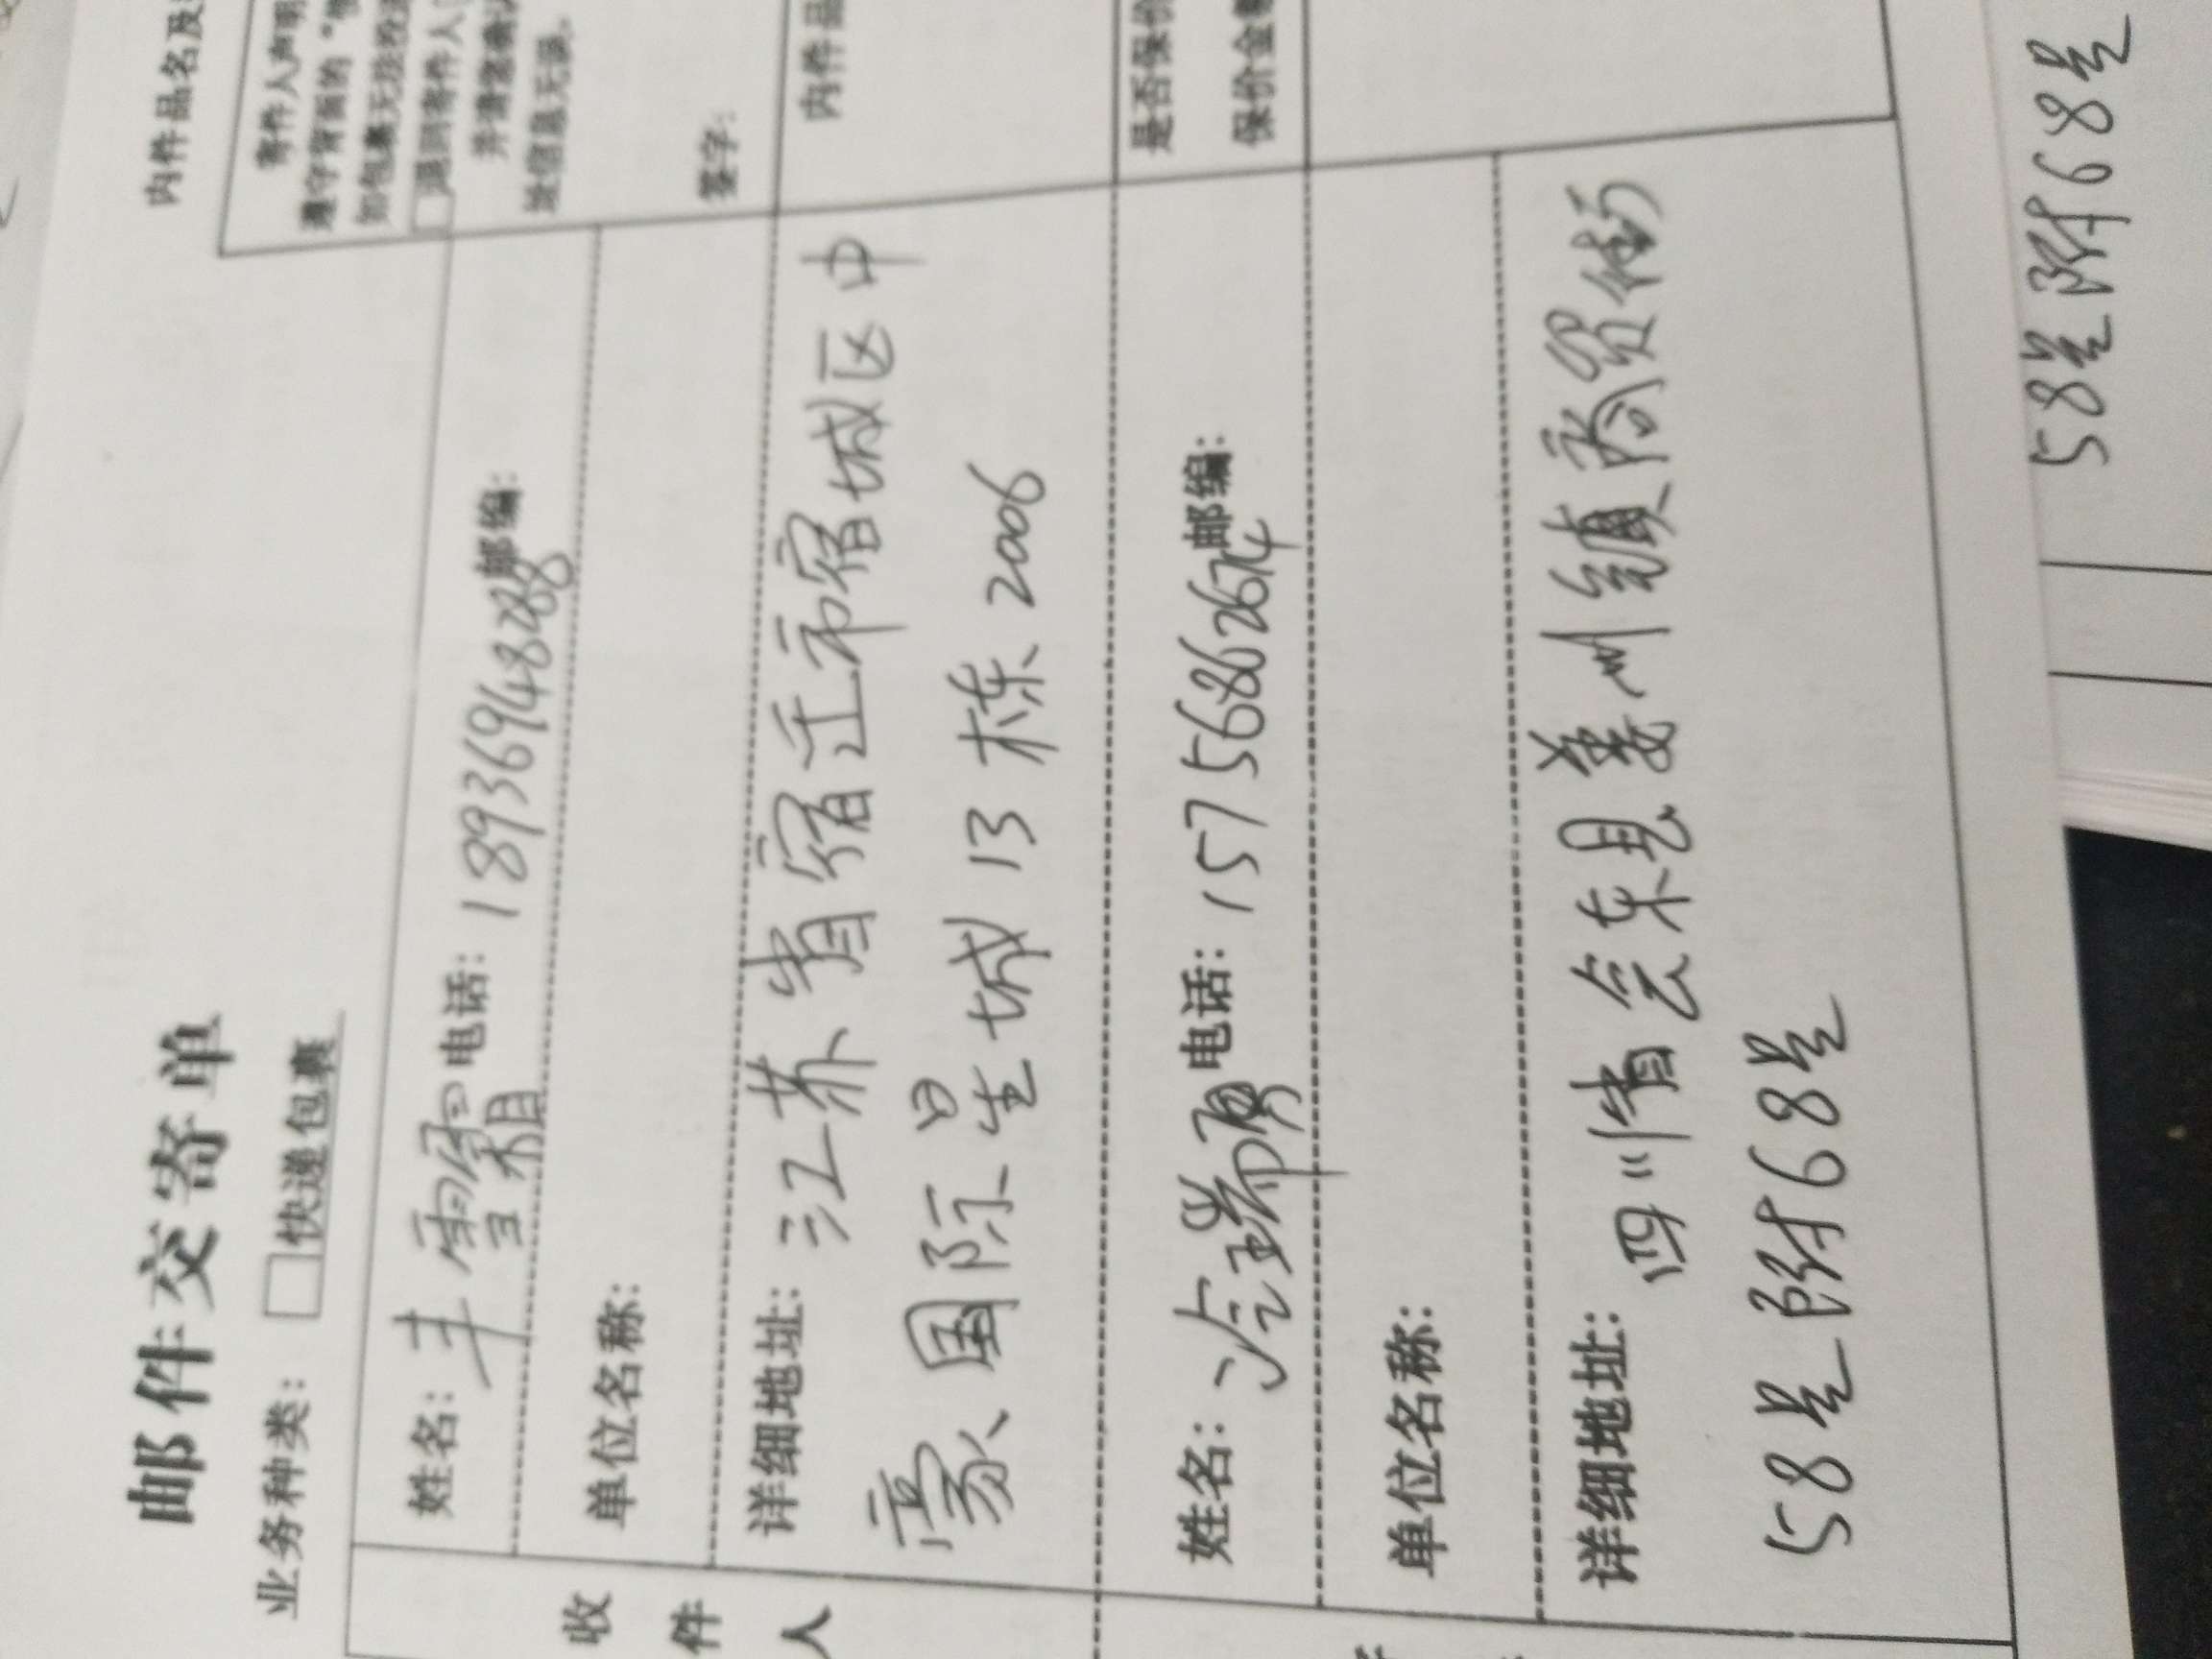 邮件交寄单
业务种类: □快递包裹
内件品名及
寄件人声明
遵守背面的“
如包裹无法投递
□退回寄件人
并请您确认
址信息无误。
签字:
收件人
姓名: 丰雪霜 电话: 18936948288 邮编:
单位名称:
详细地址: 江苏省宿迁市宿城区中
豪国际星城13栋2006
内件品
姓名: 冷瑞 电话: 15756862674 邮编:
单位名称:
详细地址: 四川省会东县姜州镇商贸街
58号附68号
是否保价
保价金
58号附68号